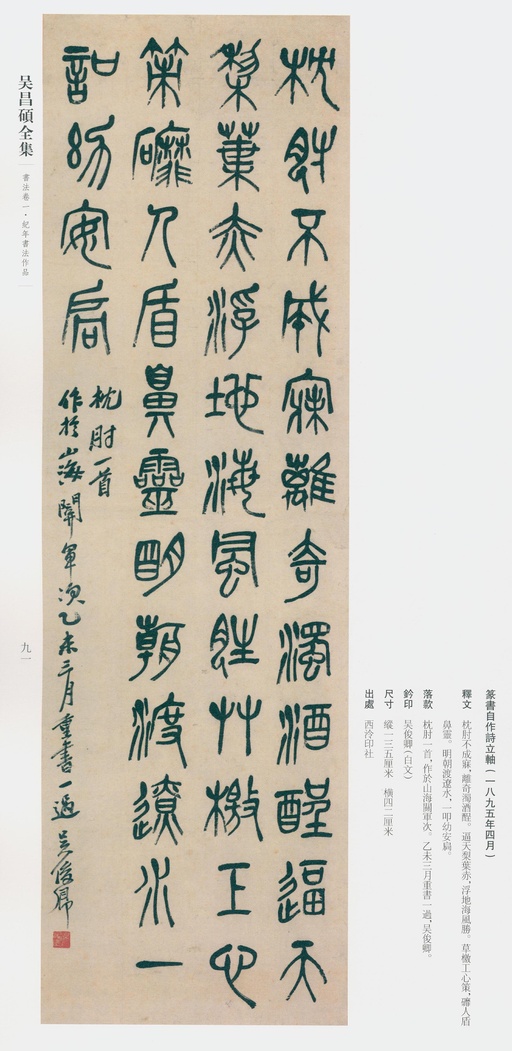 篆書自作詩立軸(一八九五年四月)
釋文 枕肘不成寐,離奇濁酒醒。逼天梨葉赤,浮地海風勝。草檄工心策,礳人盾
鼻靈。明朝渡遼水,一叩幼安扃。
落款 枕肘一首,作於山海關軍次。乙未三月重書一過,吳俊卿。
鈐印 吳俊卿(白文)
尺寸 縱一三五厘米 橫四二厘米
出處 西泠印社
枕肘不成寐離奇濁酒醒逼天
梨葉赤浮地海風胜艸檄工心
策礳人盾鼻靈明朝渡遼水一
叩幼安扃
枕肘一首
作於山海關軍次乙未三月重書一過吳俊卿
吴昌碩全集
書法卷一·紀年書法作品
九一